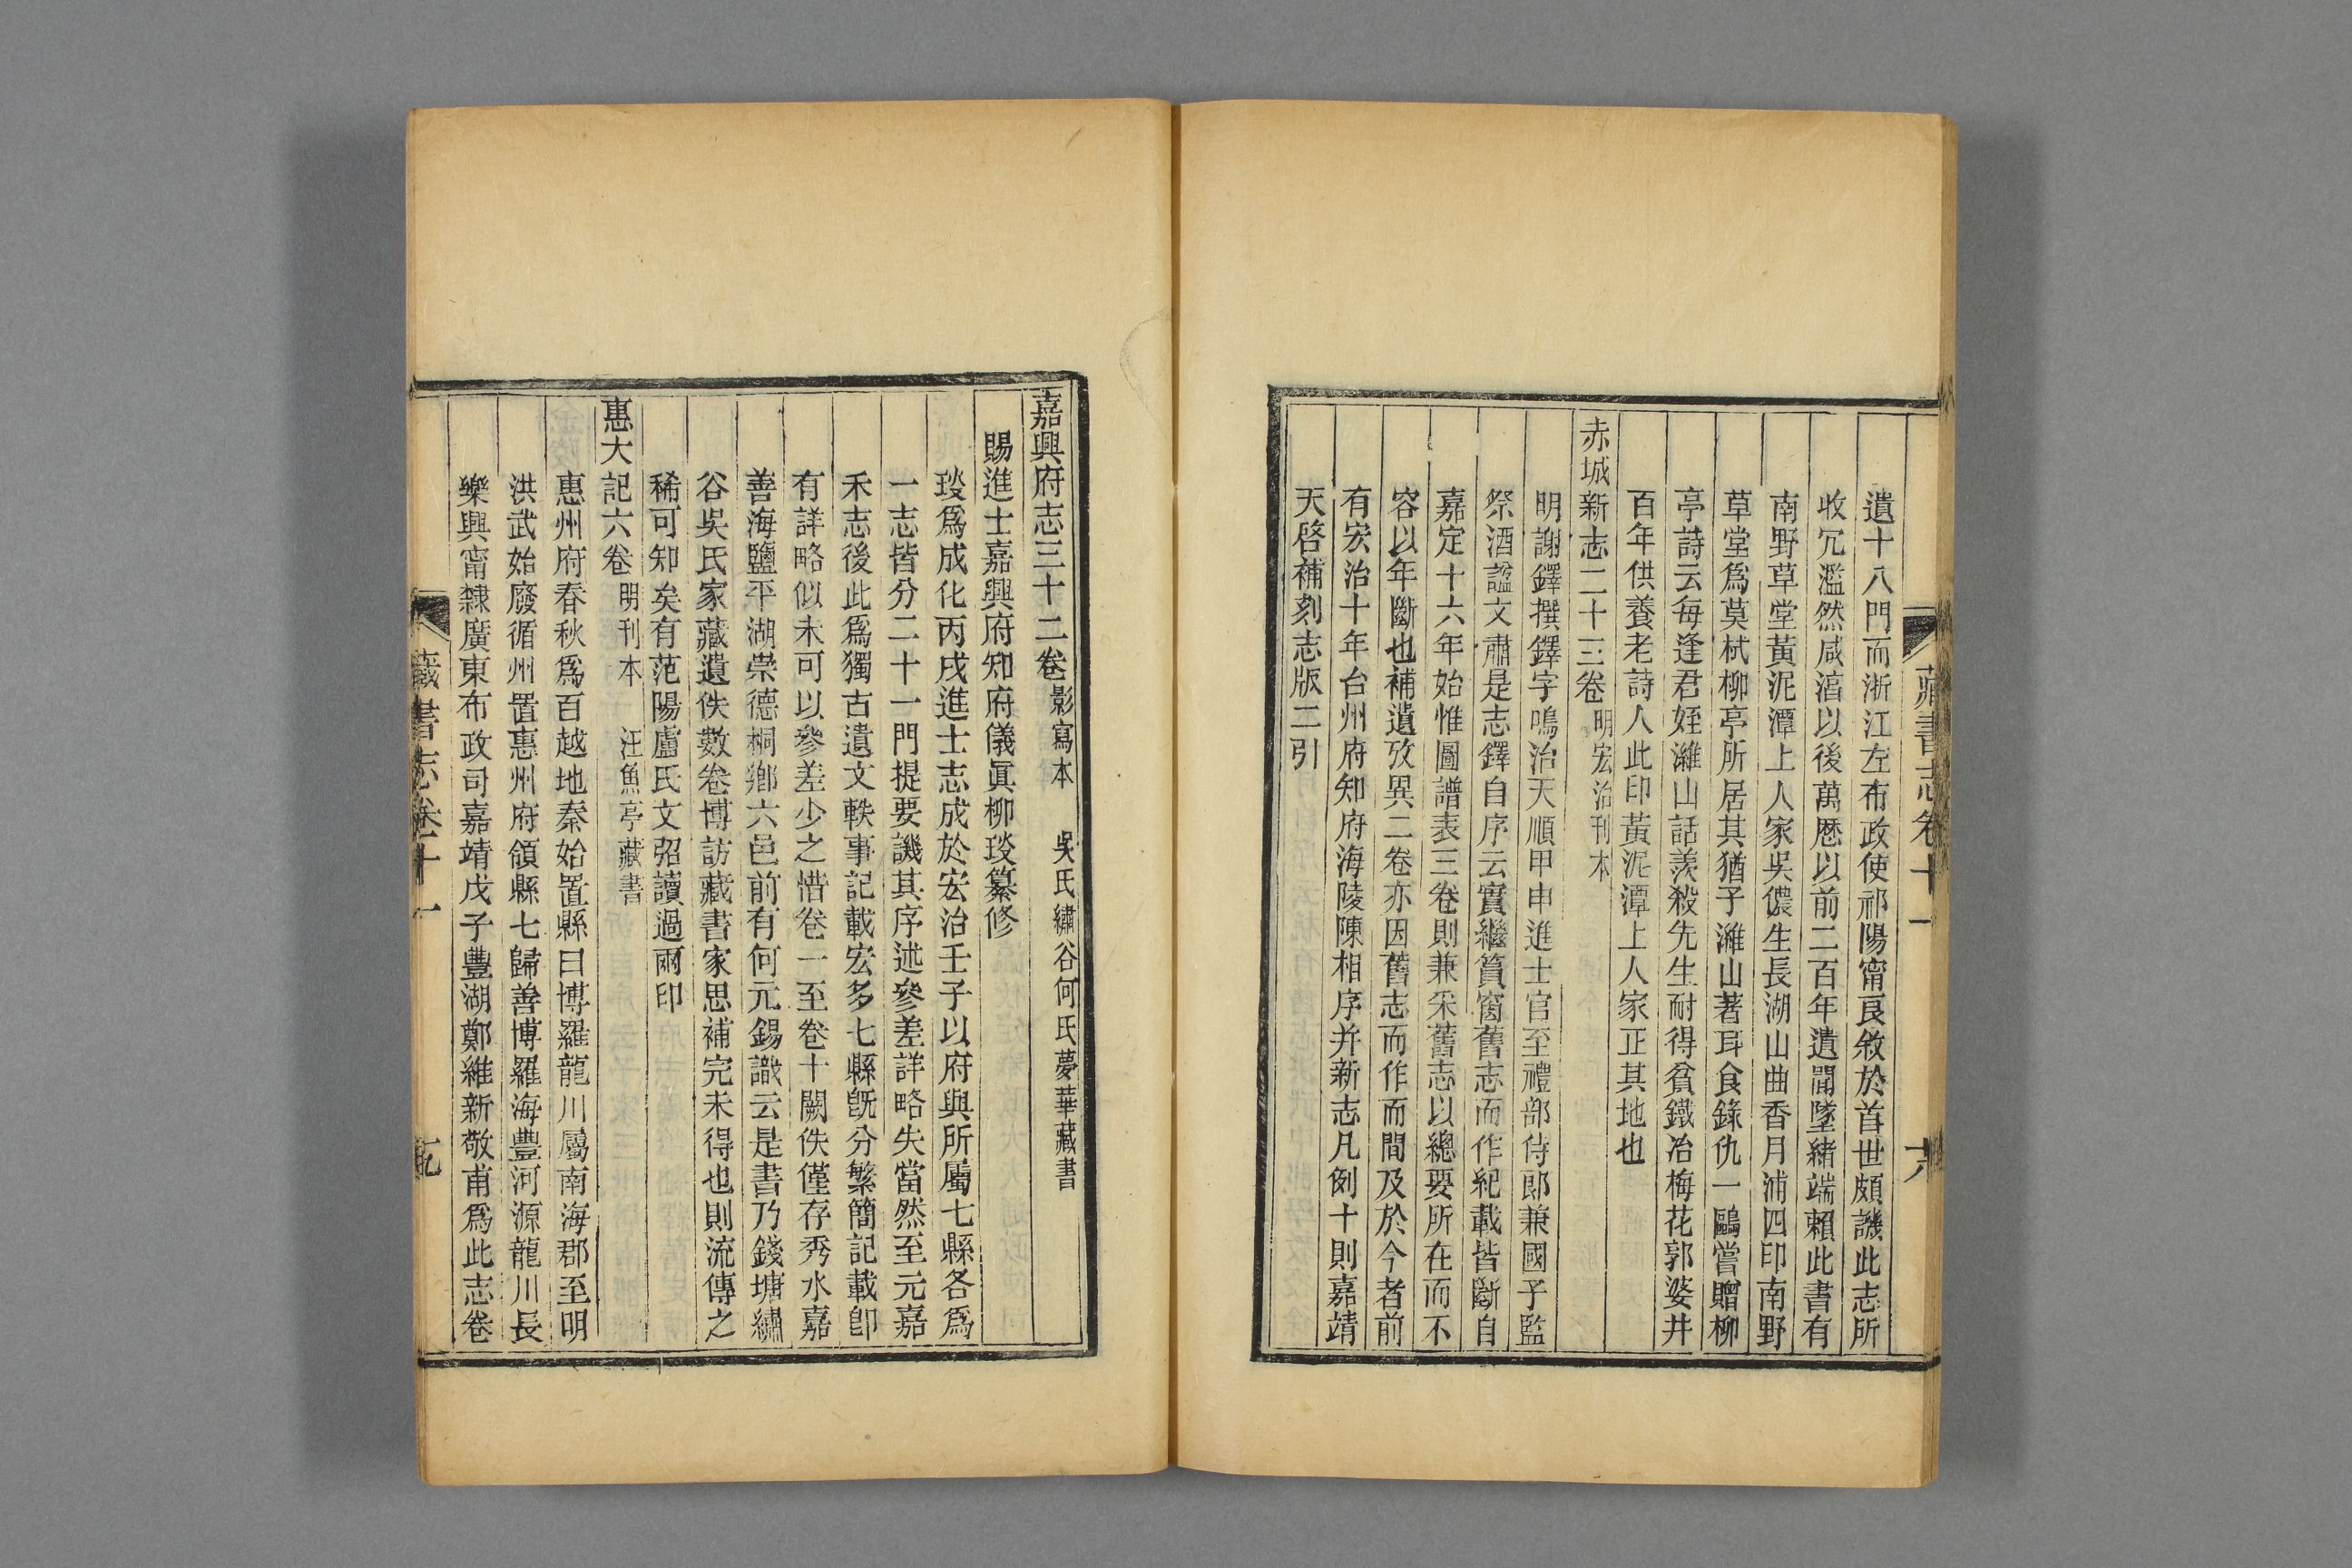 藏書志卷十一
遺十八門而浙江左布政使祁陽甯良敘於首世頗譏此志所
收冗濫然咸淳以後萬厯以前二百年遺聞墜緒端賴此書有
南野草堂黃泥潭上人家吳儂生長湖山曲香月浦四印南野
草堂爲莫栻柳亭所居其猶子濰山著耳食錄仇一鷗嘗贈柳
亭詩云每逢君姪濰山話羨殺先生耐得貧鐵冶梅花郭婆井
百年供養老詩人此印黃泥潭上人家正其地也
赤城新志二十三卷 明宏治刊本
明謝鐸撰鐸字鳴治天順甲申進士官至禮部侍郎兼國子監
祭酒諡文肅是志鐸自序云實繼篔窗舊志而作紀載皆斷自
嘉定十六年始惟圖譜表三卷則兼采舊志以總要所在而不
容以年斷也補遺攷異二卷亦因舊志而作而間及於今者前
有宏治十年台州府知府海陵陳相序并新志凡例十則嘉靖
天啓補刻志版二引
嘉興府志三十二卷 影寫本 吳氏繡谷何氏夢華藏書
賜進士嘉興府知府儀眞柳琰纂修
琰爲成化丙戌進士志成於宏治壬子以府與所屬七縣各爲
一志皆分二十一門提要譏其序述參差詳略失當然至元嘉
禾志後此爲獨古遺文軼事記載宏多七縣旣分繁簡記載卽
有詳略似未可以參差少之惜卷一至卷十闕佚僅存秀水嘉
善海鹽平湖崇德桐鄉六邑前有何元錫識云是書乃錢塘繡
谷吳氏家藏遺佚數卷博訪藏書家思補完未得也則流傳之
稀可知矣有范陽盧氏文弨讀過兩印
惠大記六卷 明刊本 汪魚亭藏書
惠州府春秋爲百越地秦始置縣曰博羅龍川屬南海郡至明
洪武始廢循州置惠州府領縣七歸善博羅海豐河源龍川長
樂興甯隸廣東布政司嘉靖戊子豐湖鄭維新敬甫爲此志卷
藏書志卷十一